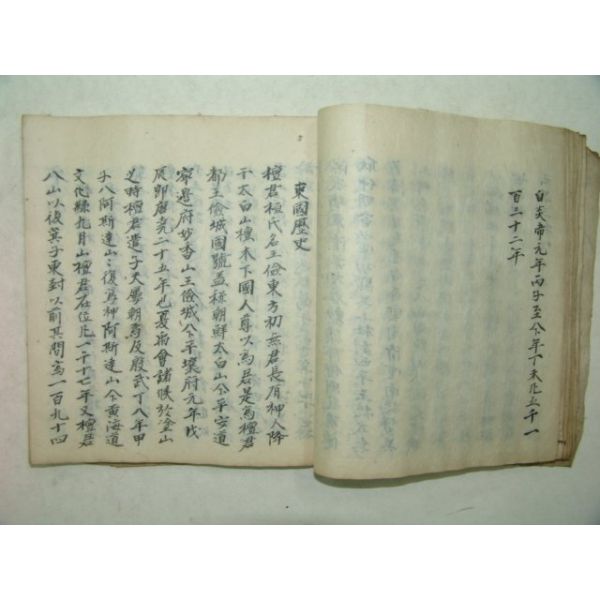 自炎帝元年丙子至今年丁未凡五千一
百三十二年
東國歷史
檀君桓氏名王儉東方初無君長有神人降
于太白山檀木下國人尊以爲君是爲檀君
都王儉城國號盖稱朝鮮太白山今平安道
寧邊府妙香山王儉城今平壤府元年戊
辰即唐堯二十五年也夏禹會諸侯於塗山
之時檀君遣子夫婁朝焉及殷武丁八年甲
子入阿斯達山〻復爲神阿斯達山今黃海道
文化縣九月山檀君在位凡一千十七年又檀君
入山以後箕子東封以前其間爲一百九十四